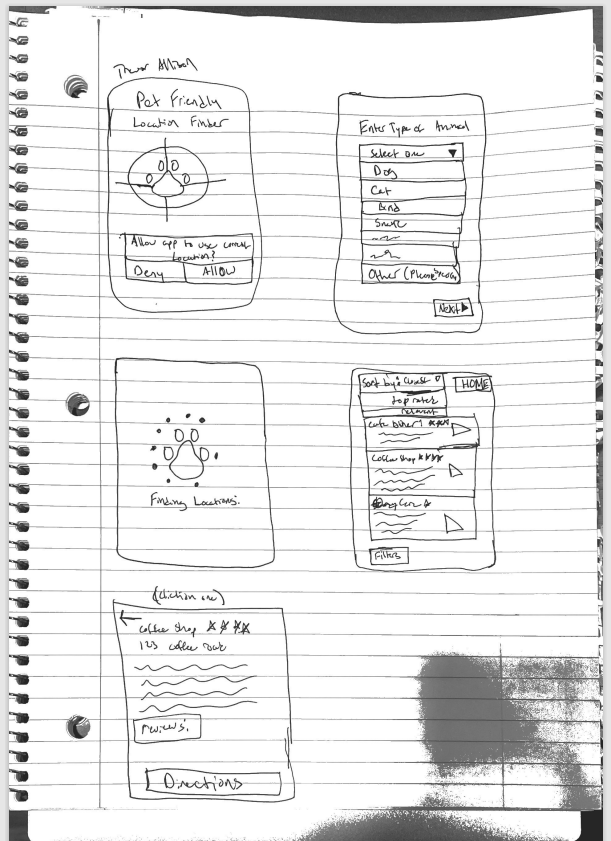 Trevor Allison
Pet Friendly
Location Finder
Allow app to use current
Location?
Deny
Allow
Enter Type of Animal
Select one
Dog
Cat
Bird
Snake
Other (Please
Next
Finding Locations.
Sort by: Closest
HOME
top rated
relevant
Coffee Shop
Filters
(Clicking one)
Coffee Shop
123 coffee
reviews.
Directions